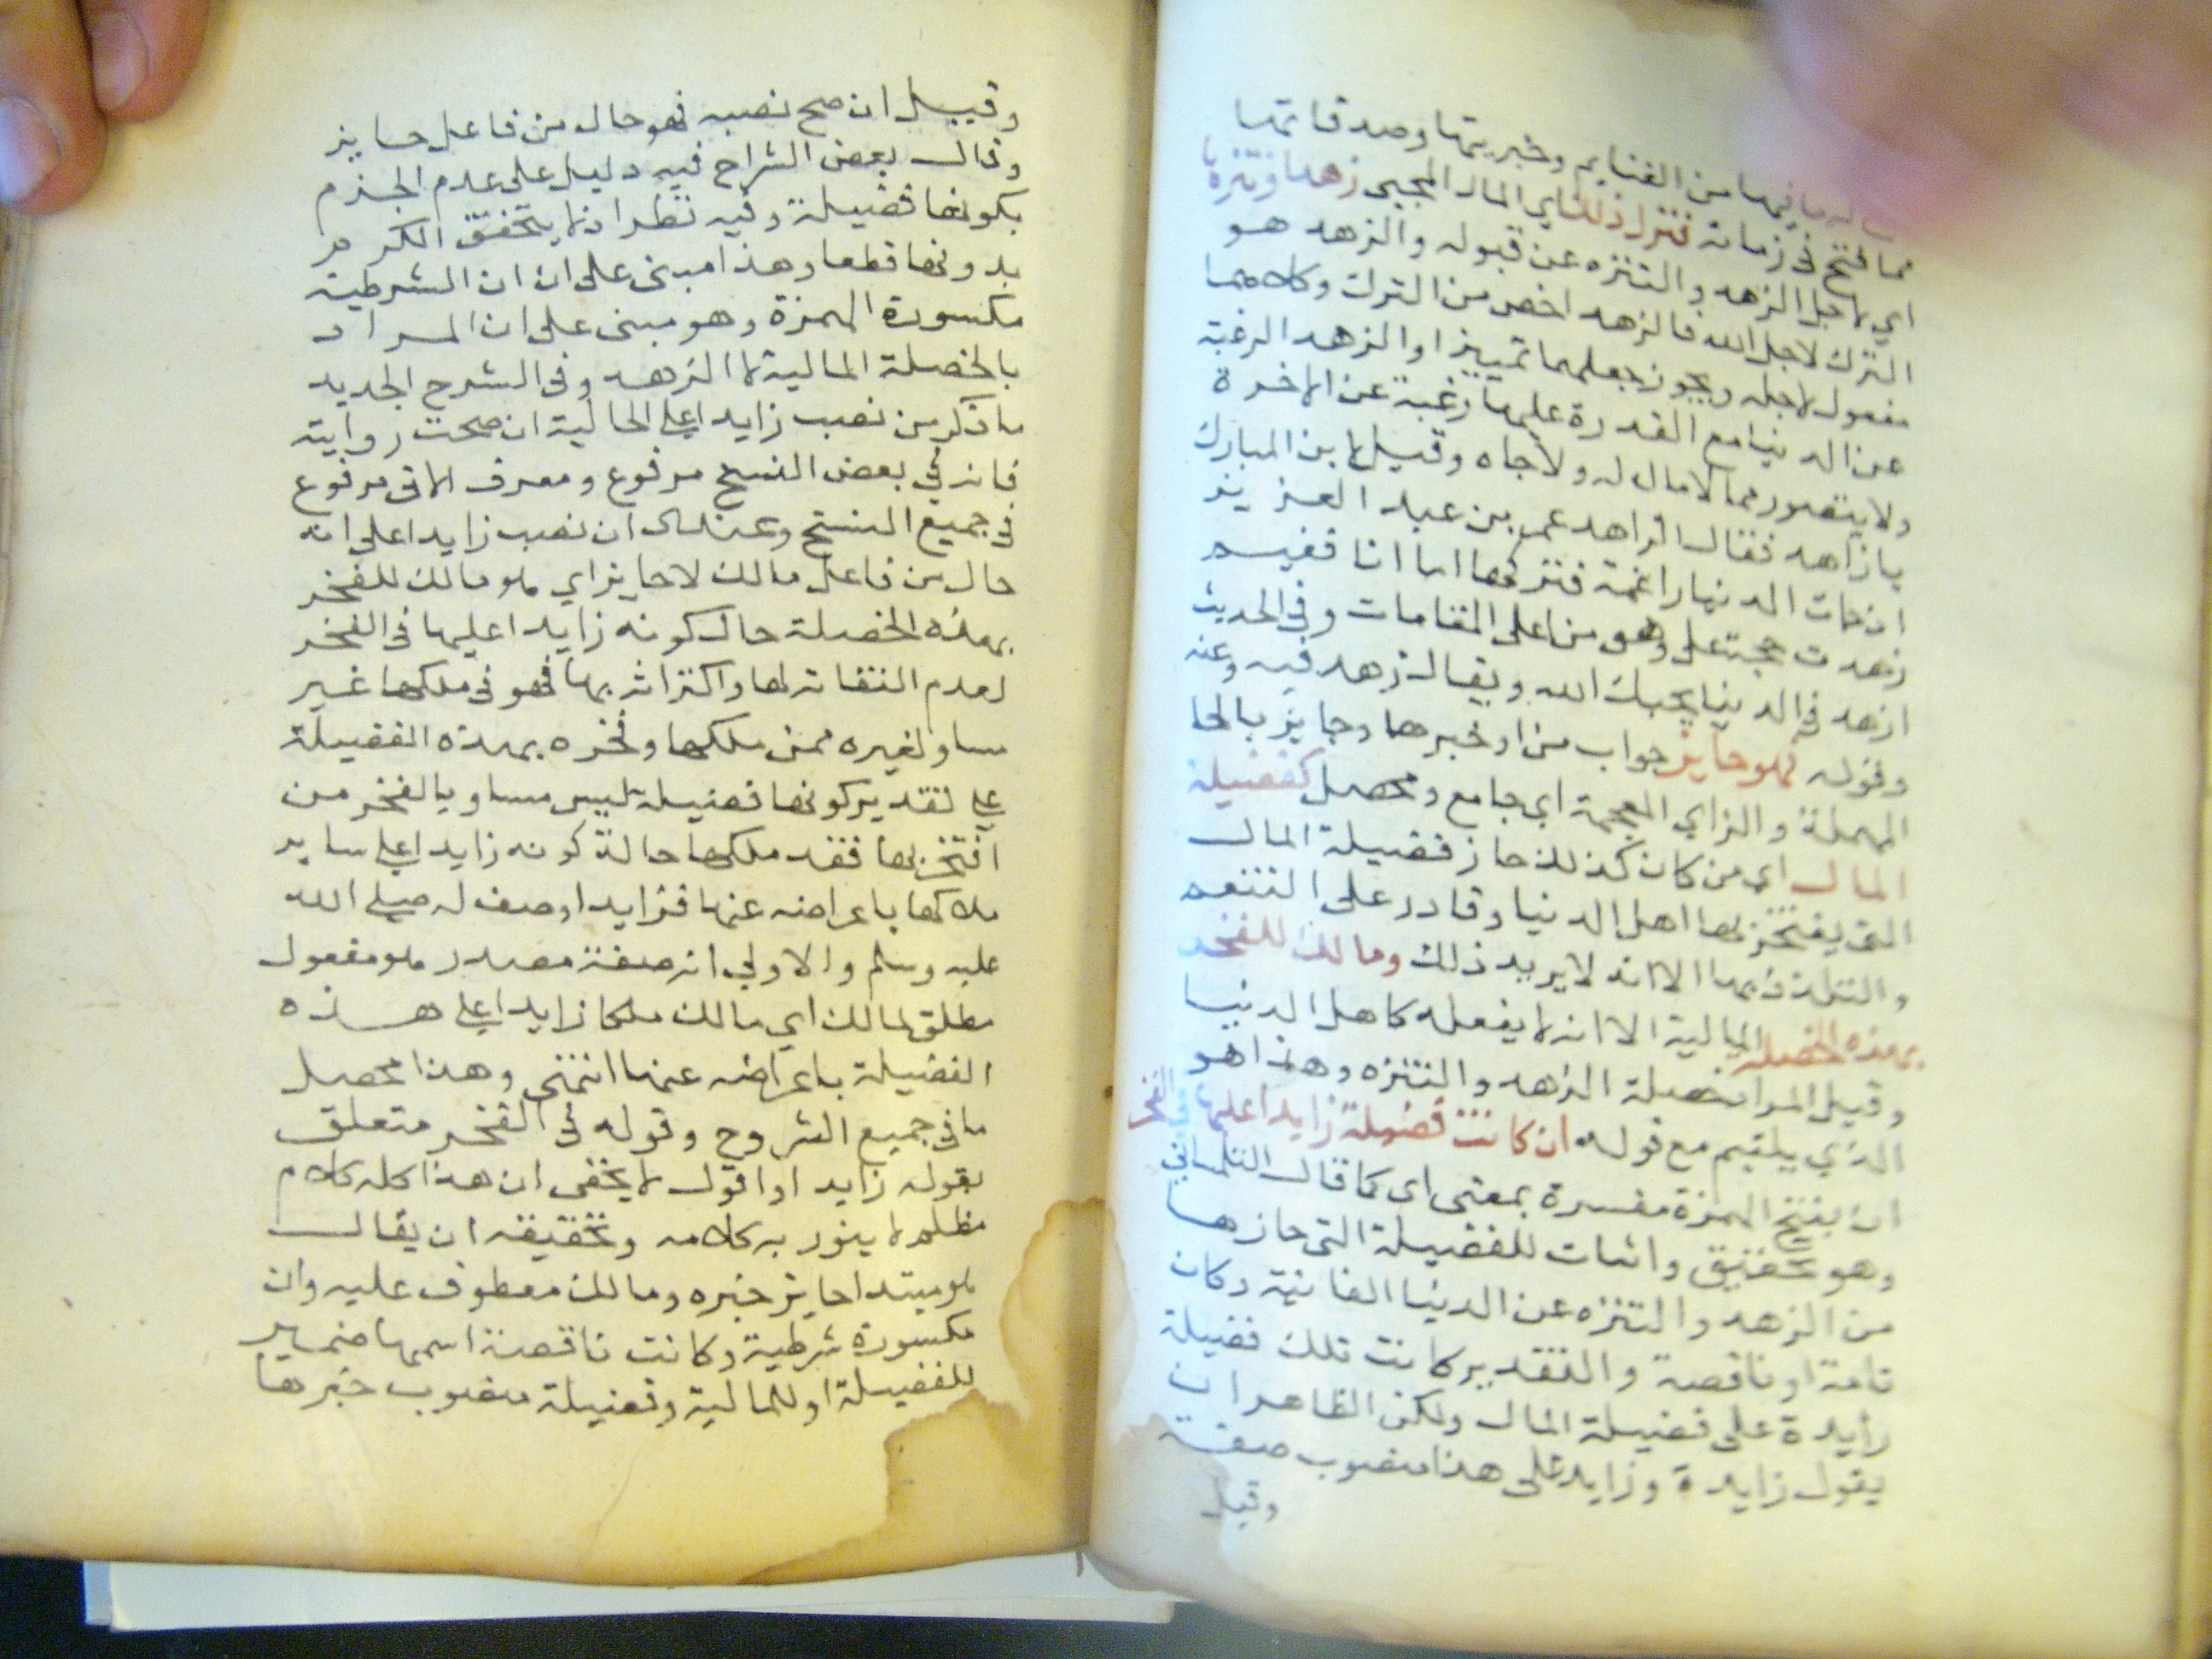 فيها من الغنايم وخبريتها وصدقاتها
مما فتح في زمانه فترك ذلك اي المال المجبى زهدا وتنزها
اي لاجل الزهد والتنزه عن قبوله والزهد هو
الترك لاجل الله فالزهد اخص من الترك وكلاهما
مفعول لاجله ويجوز جعلهما تمييزا والزهد الرغبة
عن الدنيا مع القدرة عليها رغبة عن الاخرة
ولا يتصور مما لا مال له ولا جاه وقيل لابن المبارك
يا زاهد فقال الزاهد عمر بن عبد العزيز
اذ جات الدنيا راغمة فتركها اما انا ففيم
زهدت حجته علي وهو من اعلى المقامات وفي الحديث
ازهد في الدنيا يحبك الله ويقال زهد فيه وعنه
وقوله فهو حايز جواب من او خبرها وجايز بالحا
المهملة والزاي المعجمة اي جامع ومحصل كفضيلة
المال اي من كان كذلك حاز فضيلة المال
التي يفتخر بها اهل الدنيا وقادر على التنعم
والتلذذ بها الا انه لا يريد ذلك ومالك للفخر
بهذه الخصلة المالية الا انه لا يفعله كاهل الدنيا
وقيل المراد خصلة الزهد والتنزه وهذا هو
الذي يلتيم مع قوله ان كانت فضيلة زايدا عليها في الفخر
ان بفتح الهمزة مفسرة بمعنى اي كما قال التلمساني
وهو تحقيق واثبات للفضيلة التي حازها
من الزهد والتنزه عن الدنيا الفانية وكان
تامة او ناقصة والتقدير كانت تلك فضيلة
زايدة على فضيلة المال ولكن الظاهر ان
يقول زايدة وزايد على هذا منصوب صفة
وقيل
وقيل ان صح نصبه فهو حال من فاعل حايز
وقال بعض الشراح فيه دليل على عدم الجزم
بكونها فضيلة وفيه نظر اذ لا يتحقق الكرم
بدونها قطعا وهذا مبنى على ان ان الشرطية
مكسورة الهمزة وهو مبنى على ان المراد
بالخصلة المالية لا الزهد وفي الشرح الجديد
ما ذكر من نصب زايدا علي الحالية ان صحت روايته
فانه في بعض النسخ مرفوع ومعرف الاتي مرفوع
في جميع النسخ وعندي ان نصب زايدا على انه
حال من فاعل مالك لا حايز اي هو مالك للفخر
بهذه الخصلة حال كونه زايدا عليها في الفخر
لعدم التفاته لها واكتراثه بها فهو في ملكها غير
مساو لغيره ممن ملكها وفخره بهذه الفضيلة
علي تقدير كونها فضيلة ليس مساويا لفخر من
افتخر بها فقد ملكها حالة كونه زايدا علي ساير
ملاكها باعراضه عنها فزايدا وصف له صلى الله
عليه وسلم والاولي انه صفة مصدر هو مفعول
مطلق لمالك اي مالك ملكا زايدا علي هذه
الفضيلة باعراضه عنها انتهى وهذا محصل
ما في جميع الشروح وقوله في الفخر متعلق
بقوله زايدا واقول لا يخفى ان هذا كله كلام
مظلم لا ينور به كلامه وتحقيقه ان يقال
هو مبتدا حايز خبره ومالك معطوف عليه وان
مكسورة شرطية وكانت ناقصة اسمها ضمير
للفضيلة او للمالية وفضيلة منصوب خبرها